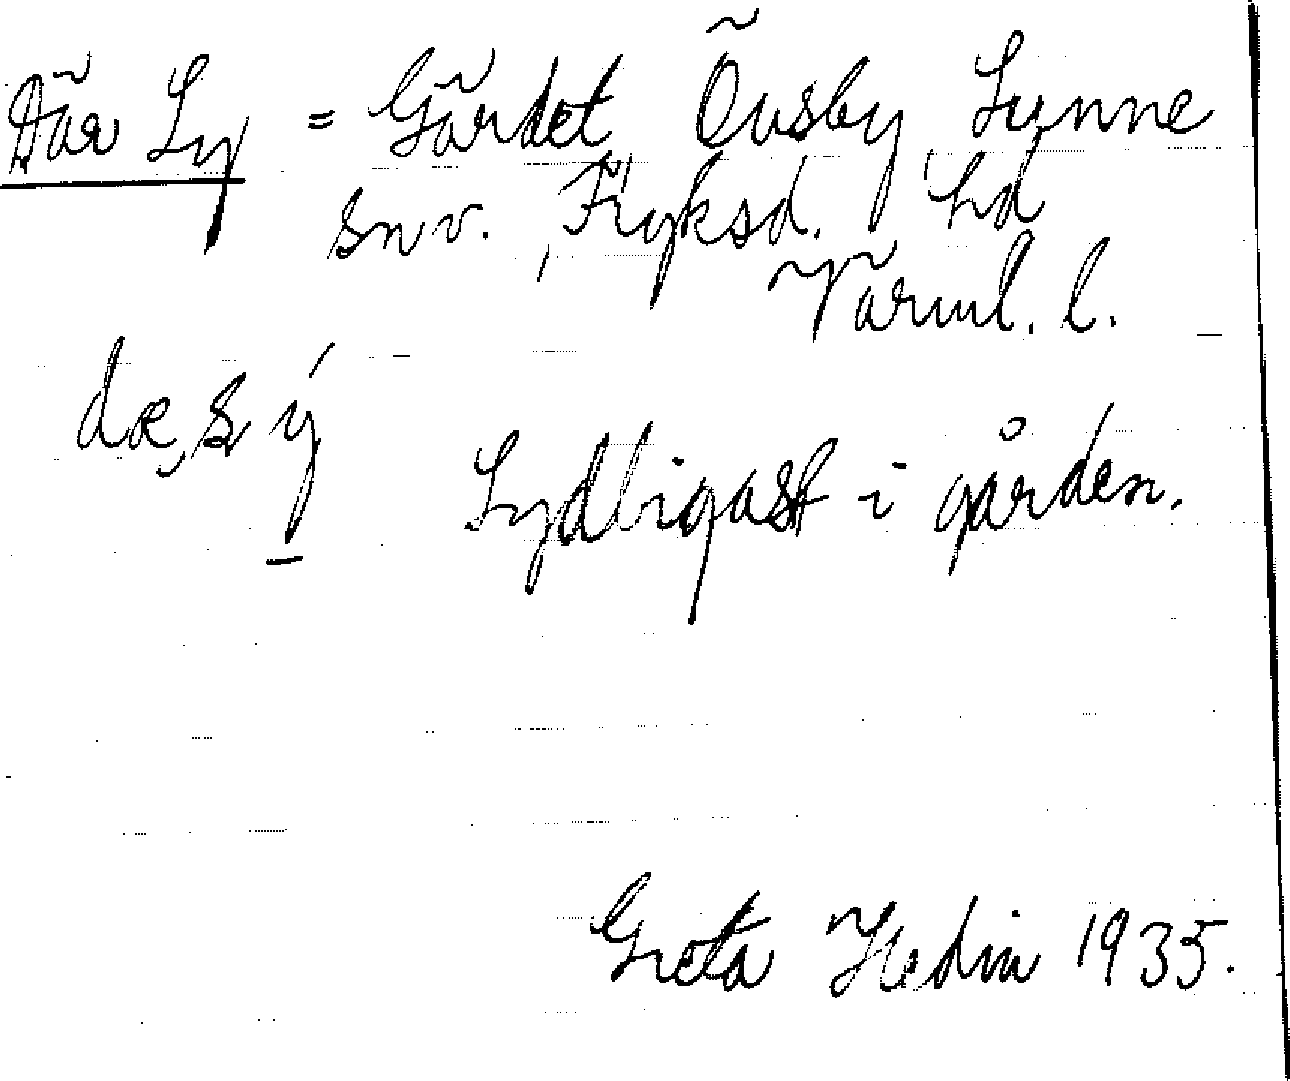 Där Sy = Gärdet, Övsby Sunne
snv., Fryksd. hd
Värml. l.
dæ, s ý
Sydligast i gården.
Greta Hedin 1935.